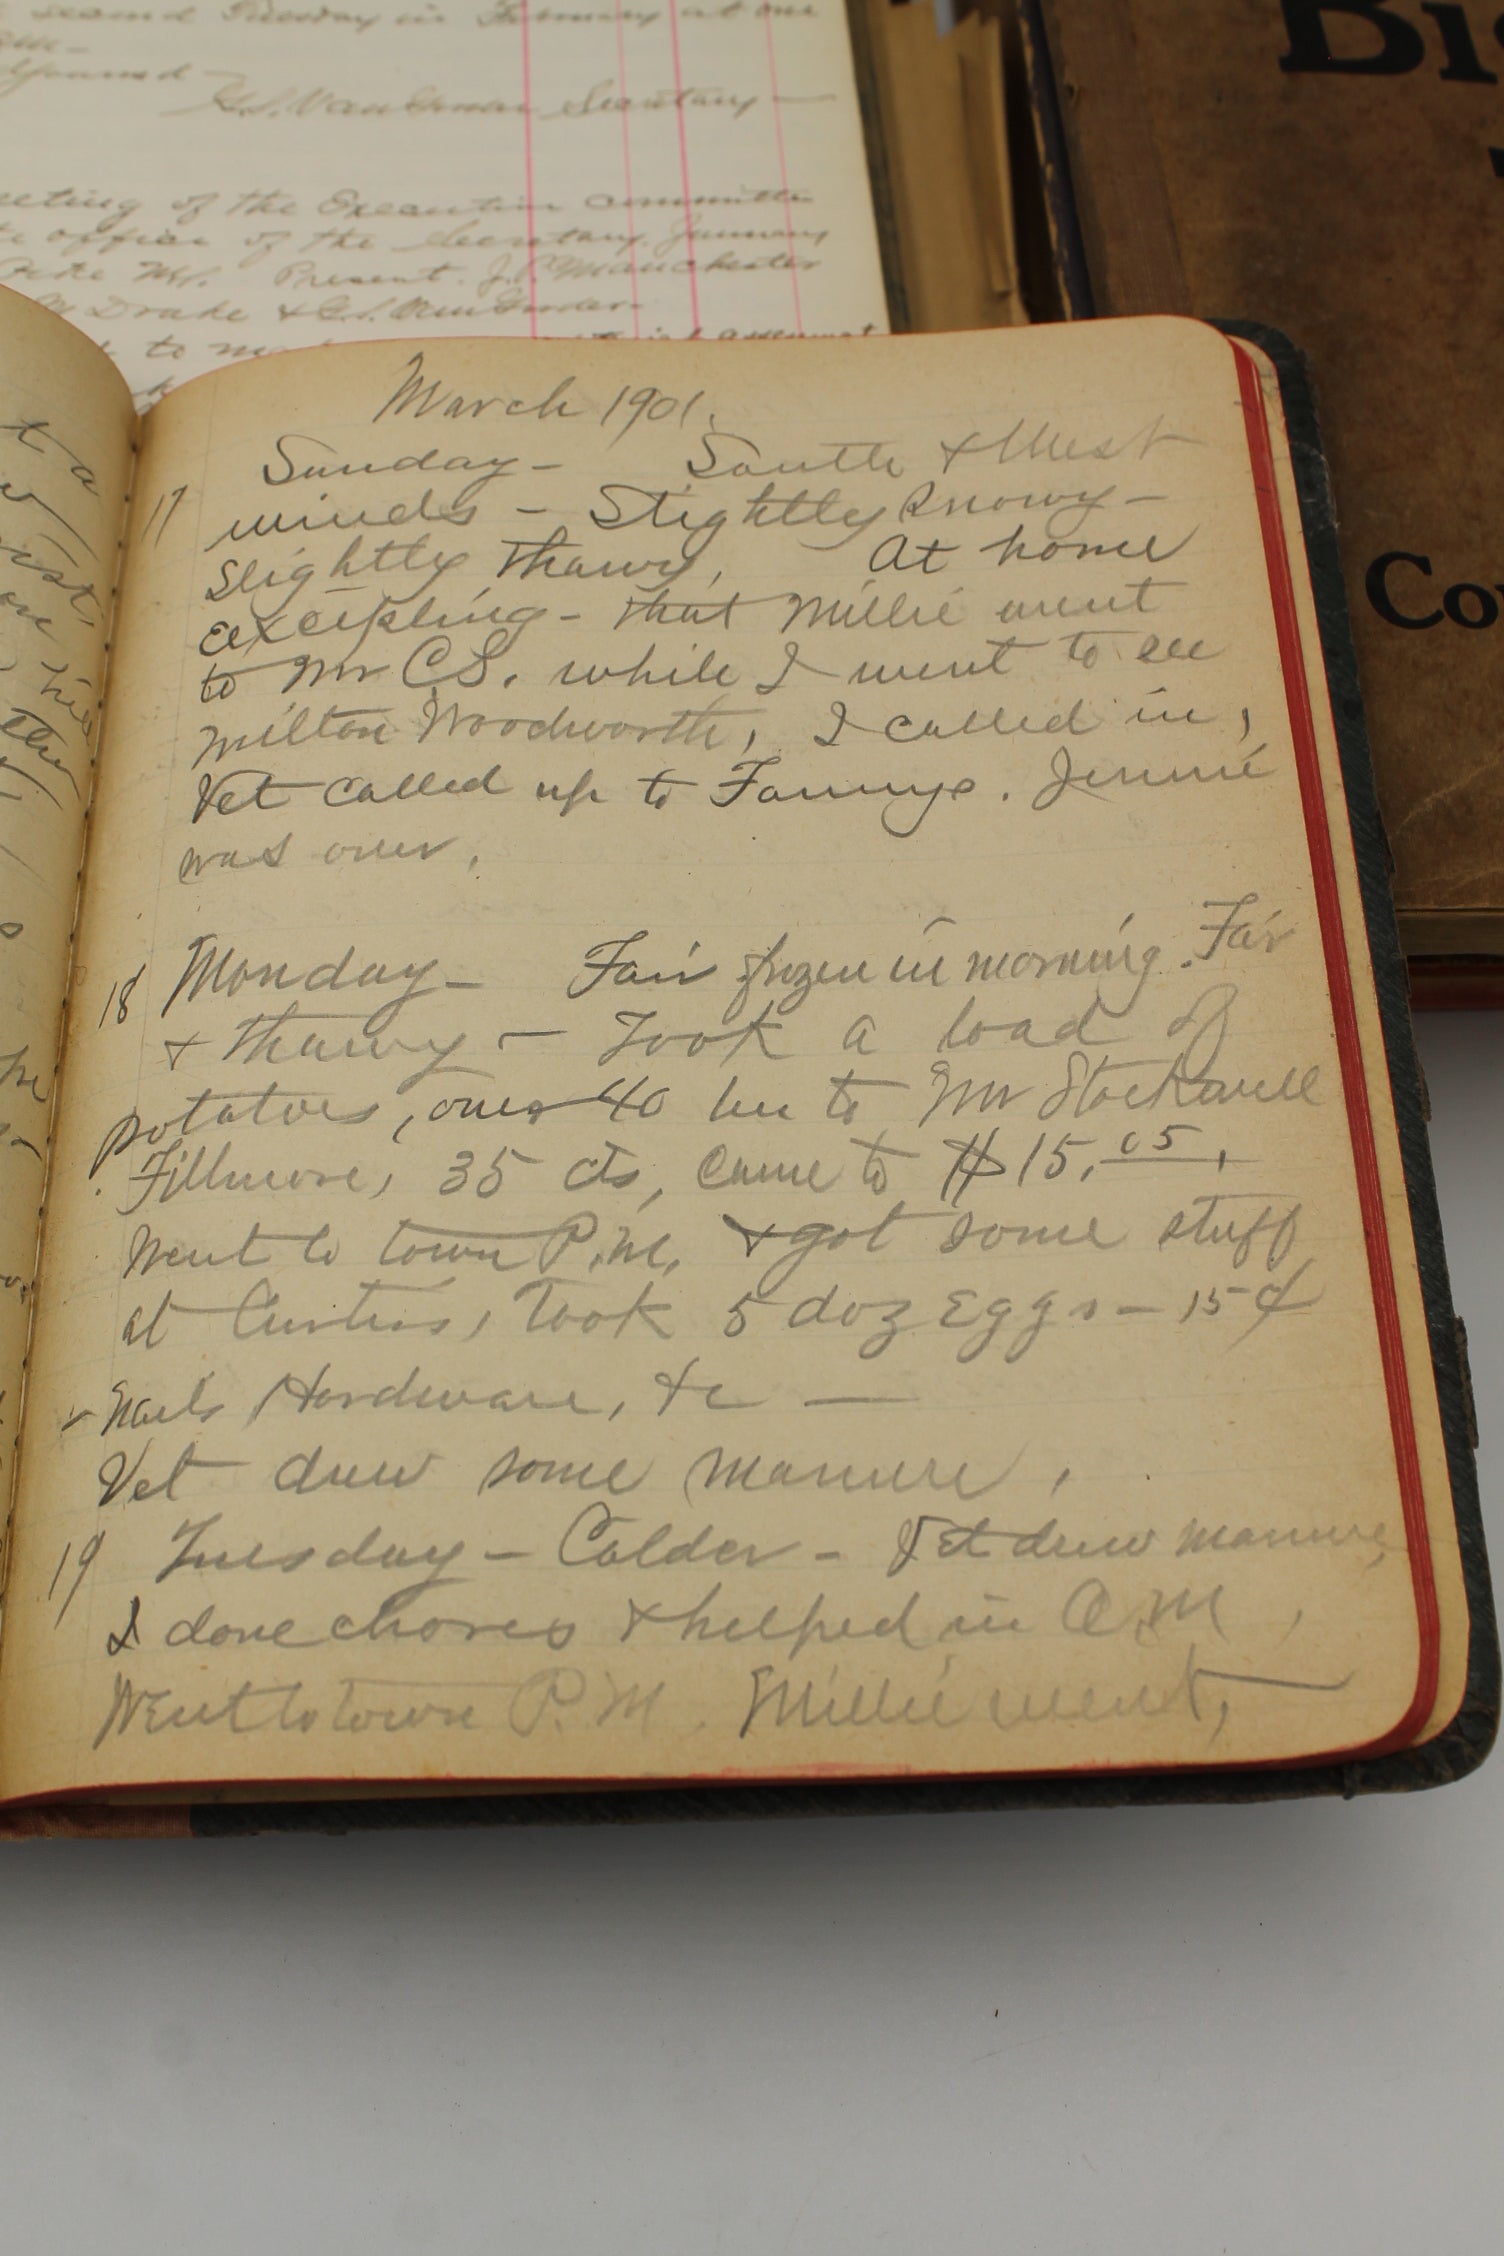 second Tuesday in February at one
S. Van Secretary —
meeting of the Executive committee
office of the Secretary. January
Present. J. P. Manchester
Drake &
to
Bi
Co
March 1901.
Sunday — South & West
17 winds — Slightly Snowy —
Slightly Thawy, At home
excepting — that Millie went
to Mr CS. while I went to see
Milton Woodworth, I called in,
Vet called up to Fannys. Jennie
was over,
18 Monday — Fair frozen in morning. Fair
& thawy — Took a load of
potatoes, over 40 bu to Mr Stockwell
Fillmore, 35 cts, came to $15.05,
Went to town P.M. & got some stuff
at Curtiss, Took 5 doz Eggs — 15¢
Nails Hardware, &c —
Vet drew some manure,
19 Tuesday — Colder — Vet drew manure,
I done chores & helped in A.M,
Went to town P.M. Millie went,